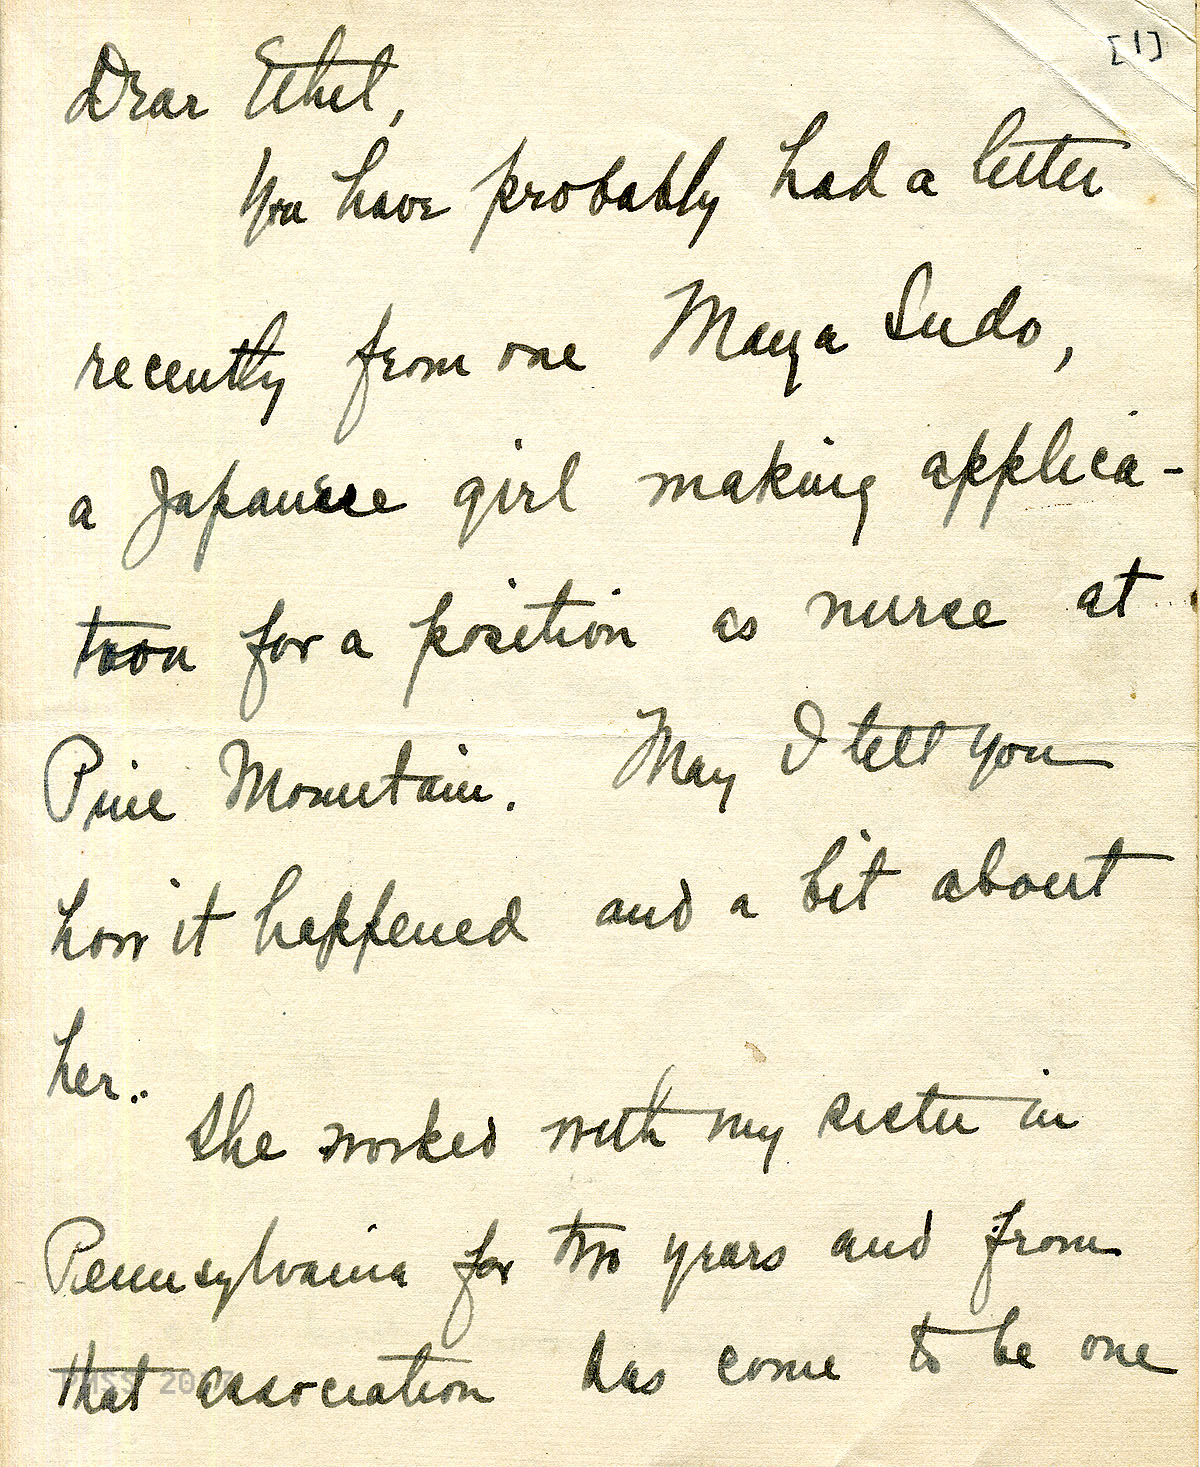 [1]
Dear Ethel,
You have probably had a letter
recently from one Maya Sudo,
a Japanese girl making applica-
tion for a position as nurse at
Pine Mountain. May I tell you
how it happened and a bit about
her..
She worked with my sister in
Pennsylvania for two years and from
that association has come to be one